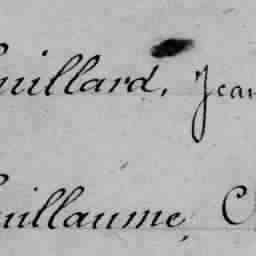 uillard, Jean
uillaume, C